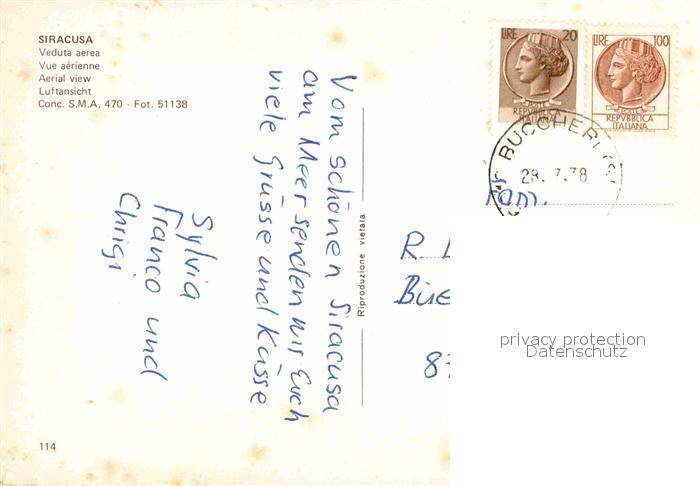 SIRACUSA
Veduta aerea
Vue aérienne
Aerial view
Luftansicht
Conc. S.M.A. 470 - Fot. 51138
Vom schönen Siracusa
am Meer senden wir Euch
viele Grüsse und Küsse
Sylvia
Franco und
Chrigi
Riproduzione vietata
LIRE 20
POSTE
REPVBBLICA
ITALIANA
LIRE 100
POSTE
REPVBBLICA
ITALIANA
BUCCHERI
28.7.78
Fam.
R
8
privacy protection
Datenschutz
114